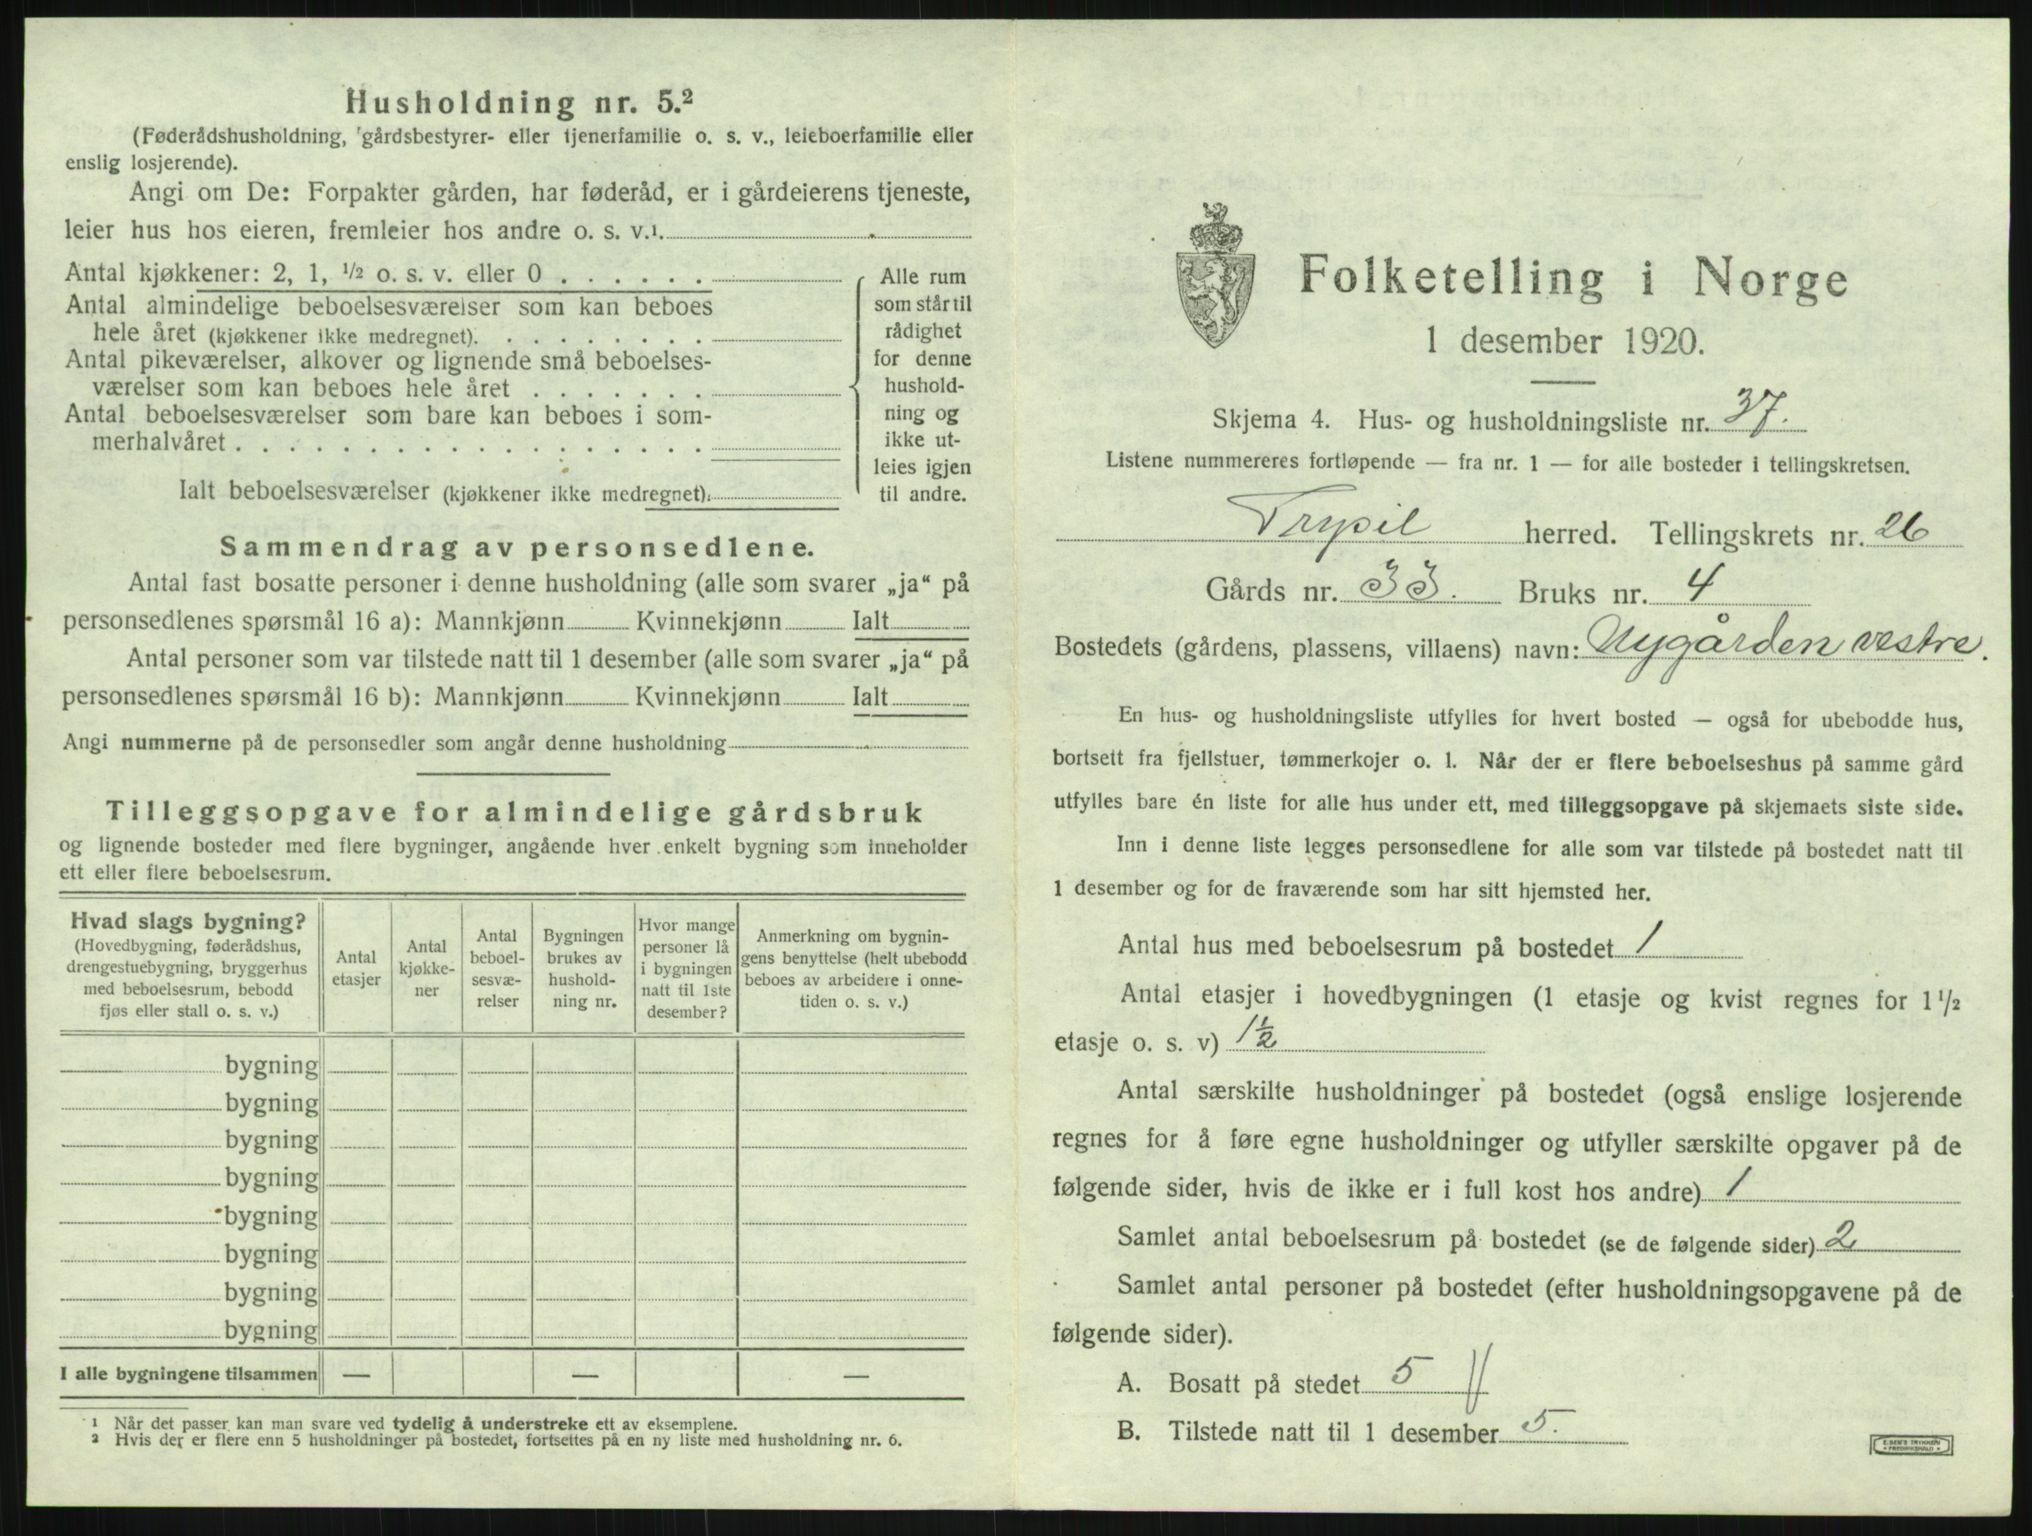 Husholdning nr. 5.²
(Føderådshusholdning, gårdsbestyrer- eller tjenerfamilie o. s. v., leieboerfamilie eller
enslig losjerende).
Angi om De: Forpakter gården, har føderåd, er i gårdeierens tjeneste,
leier hus hos eieren, fremleier hos andre o. s. v.¹.
Antal kjøkkener: 2, 1, ¹/₂ o. s. v. eller 0 . . . . . .
Antal almindelige beboelsesværelser som kan beboes
hele året (kjøkkener ikke medregnet). . . . . . . . .
Antal pikeværelser, alkover og lignende små beboelses-
værelser som kan beboes hele året . . . . . . .
Antal beboelsesværelser som bare kan beboes i som-
merhalvåret . . . . . . . . . . . . . . . . . .
Ialt beboelsesværelser (kjøkkener ikke medregnet).
Alle rum
som står til
rådighet
for denne
hushold-
ning og
ikke ut-
leies igjen
til andre.
Sammendrag av personsedlene.
Antal fast bosatte personer i denne husholdning (alle som svarer „ja“ på
personsedlenes spørsmål 16 a): Mannkjønn Kvinnekjønn Ialt
Antal personer som var tilstede natt til 1 desember (alle som svarer „ja“ på
personsedlenes spørsmål 16 b): Mannkjønn Kvinnekjønn Ialt
Angi nummerne på de personsedler som angår denne husholdning
Tilleggsopgave for almindelige gårdsbruk
og lignende bosteder med flere bygninger, angående hver enkelt bygning som inneholder
ett eller flere beboelsesrum.
Hvad slags bygning?
(Hovedbygning, føderådshus,
drengestuebygning, bryggerhus
med beboelsesrum, bebodd
fjøs eller stall o. s. v.)
Antal
etasjer
Antal
kjøkke-
ner
Antal
beboel-
sesvæ-
relser
Bygningen
brukes av
hushold-
ning nr.
Hvor mange
personer lå
i bygningen
natt til 1ste
desember?
Anmerkning om bygnin-
gens benyttelse (helt ubebodd
beboes av arbeidere i onne-
tiden o. s. v.)
bygning
bygning
bygning
bygning
bygning
bygning
bygning
bygning
I alle bygningene tilsammen — — —
¹ Når det passer kan man svare ved tydelig å understreke ett av eksemplene.
² Hvis der er flere enn 5 husholdninger på bostedet, fortsettes på en ny liste med husholdning nr. 6.
Folketelling i Norge
1 desember 1920.
Skjema 4. Hus- og husholdningsliste nr. 37.
Listene nummereres fortløpende — fra nr. 1 — for alle bosteder i tellingskretsen.
Trysil herred. Tellingskrets nr. 26
Gårds nr. 33. Bruks nr. 4
Bostedets (gårdens, plassens, villaens) navn: Nygården vestre.
En hus- og husholdningsliste utfylles for hvert bosted — også for ubebodde hus,
bortsett fra fjellstuer, tømmerkojer o. l. Når der er flere beboelseshus på samme gård
utfylles bare én liste for alle hus under ett, med tilleggsopgave på skjemaets siste side.
Inn i denne liste legges personsedlene for alle som var tilstede på bostedet natt til
1 desember og for de fraværende som har sitt hjemsted her.
Antal hus med beboelsesrum på bostedet 1
Antal etasjer i hovedbygningen (1 etasje og kvist regnes for 1 ¹/₂
etasje o. s. v) 1½
Antal særskilte husholdninger på bostedet (også enslige losjerende
regnes for å føre egne husholdninger og utfyller særskilte opgaver på de
følgende sider, hvis de ikke er i full kost hos andre) 1
Samlet antal beboelsesrum på bostedet (se de følgende sider) 2
Samlet antal personer på bostedet (efter husholdningsopgavene på de
følgende sider).
A. Bosatt på stedet 5
B. Tilstede natt til 1 desember 5.